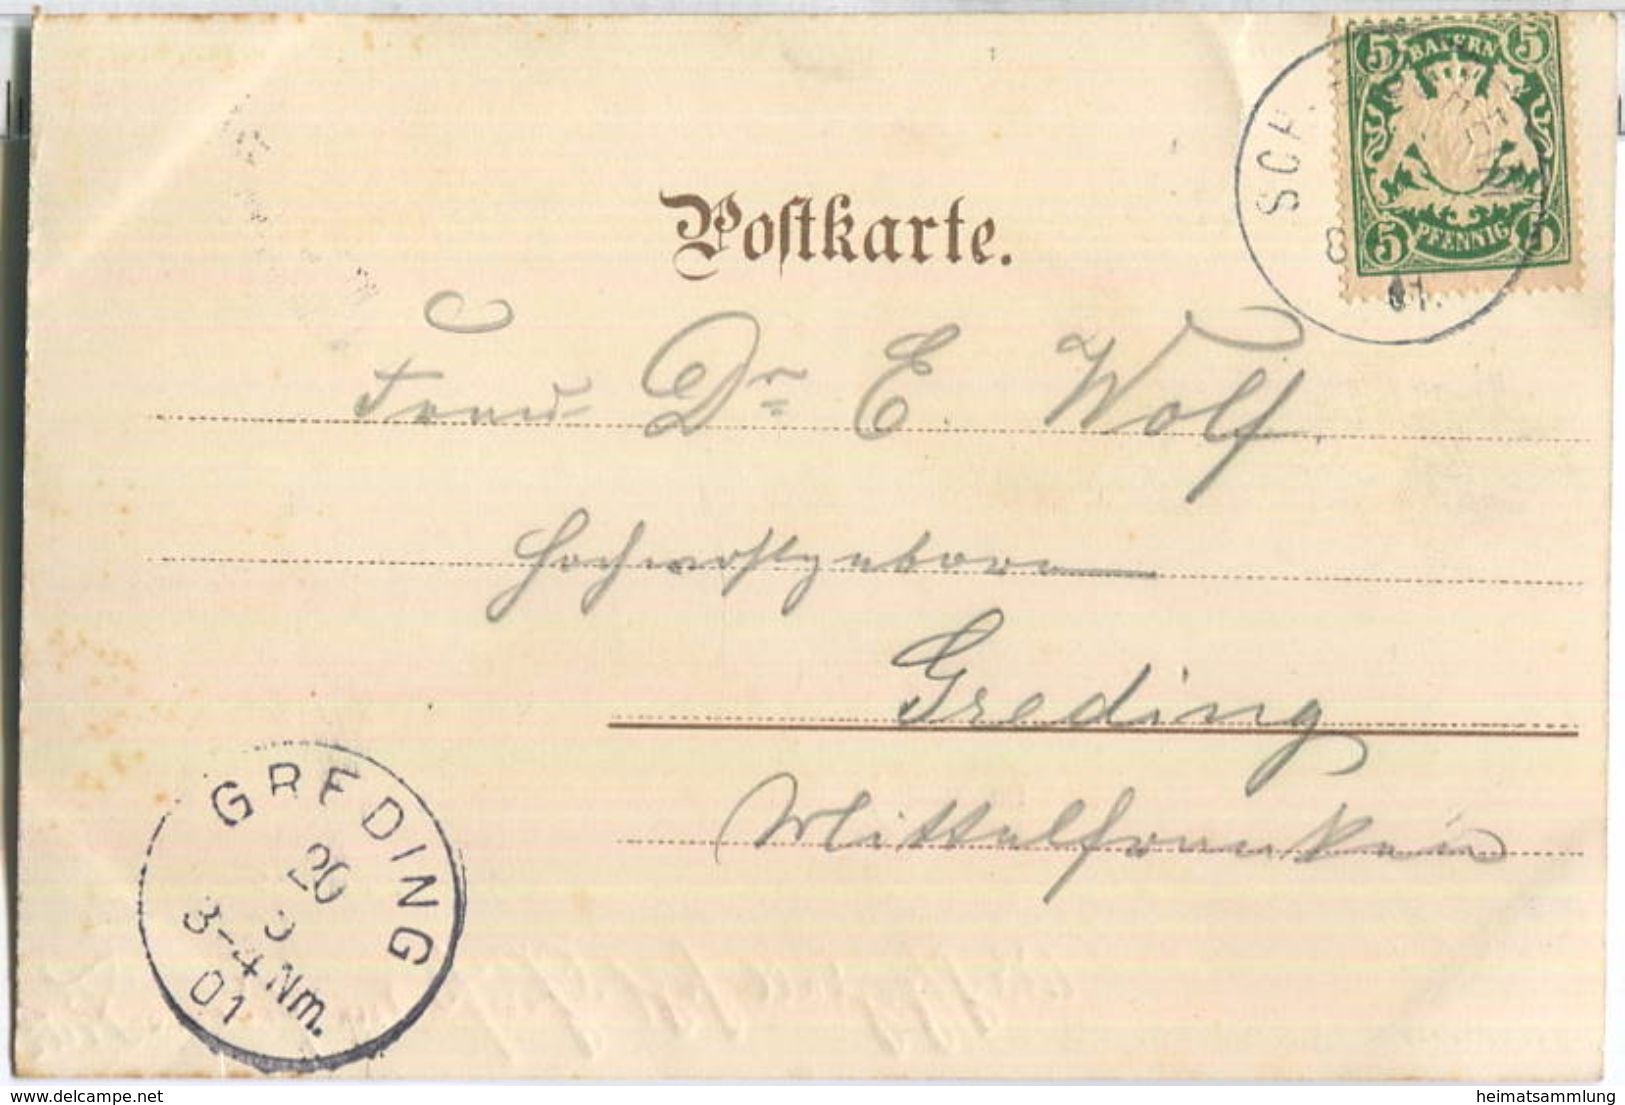 5 BAYERN 5
5 PFENNIG 5
SCH
8
01.
Postkarte.
Frau Dr E. Wolf.
Hochwohlgeboren
Greding
Mittelfranken
GREDING
20
3-4 Nm.
01
www.delcampe.net
heimatsammlung